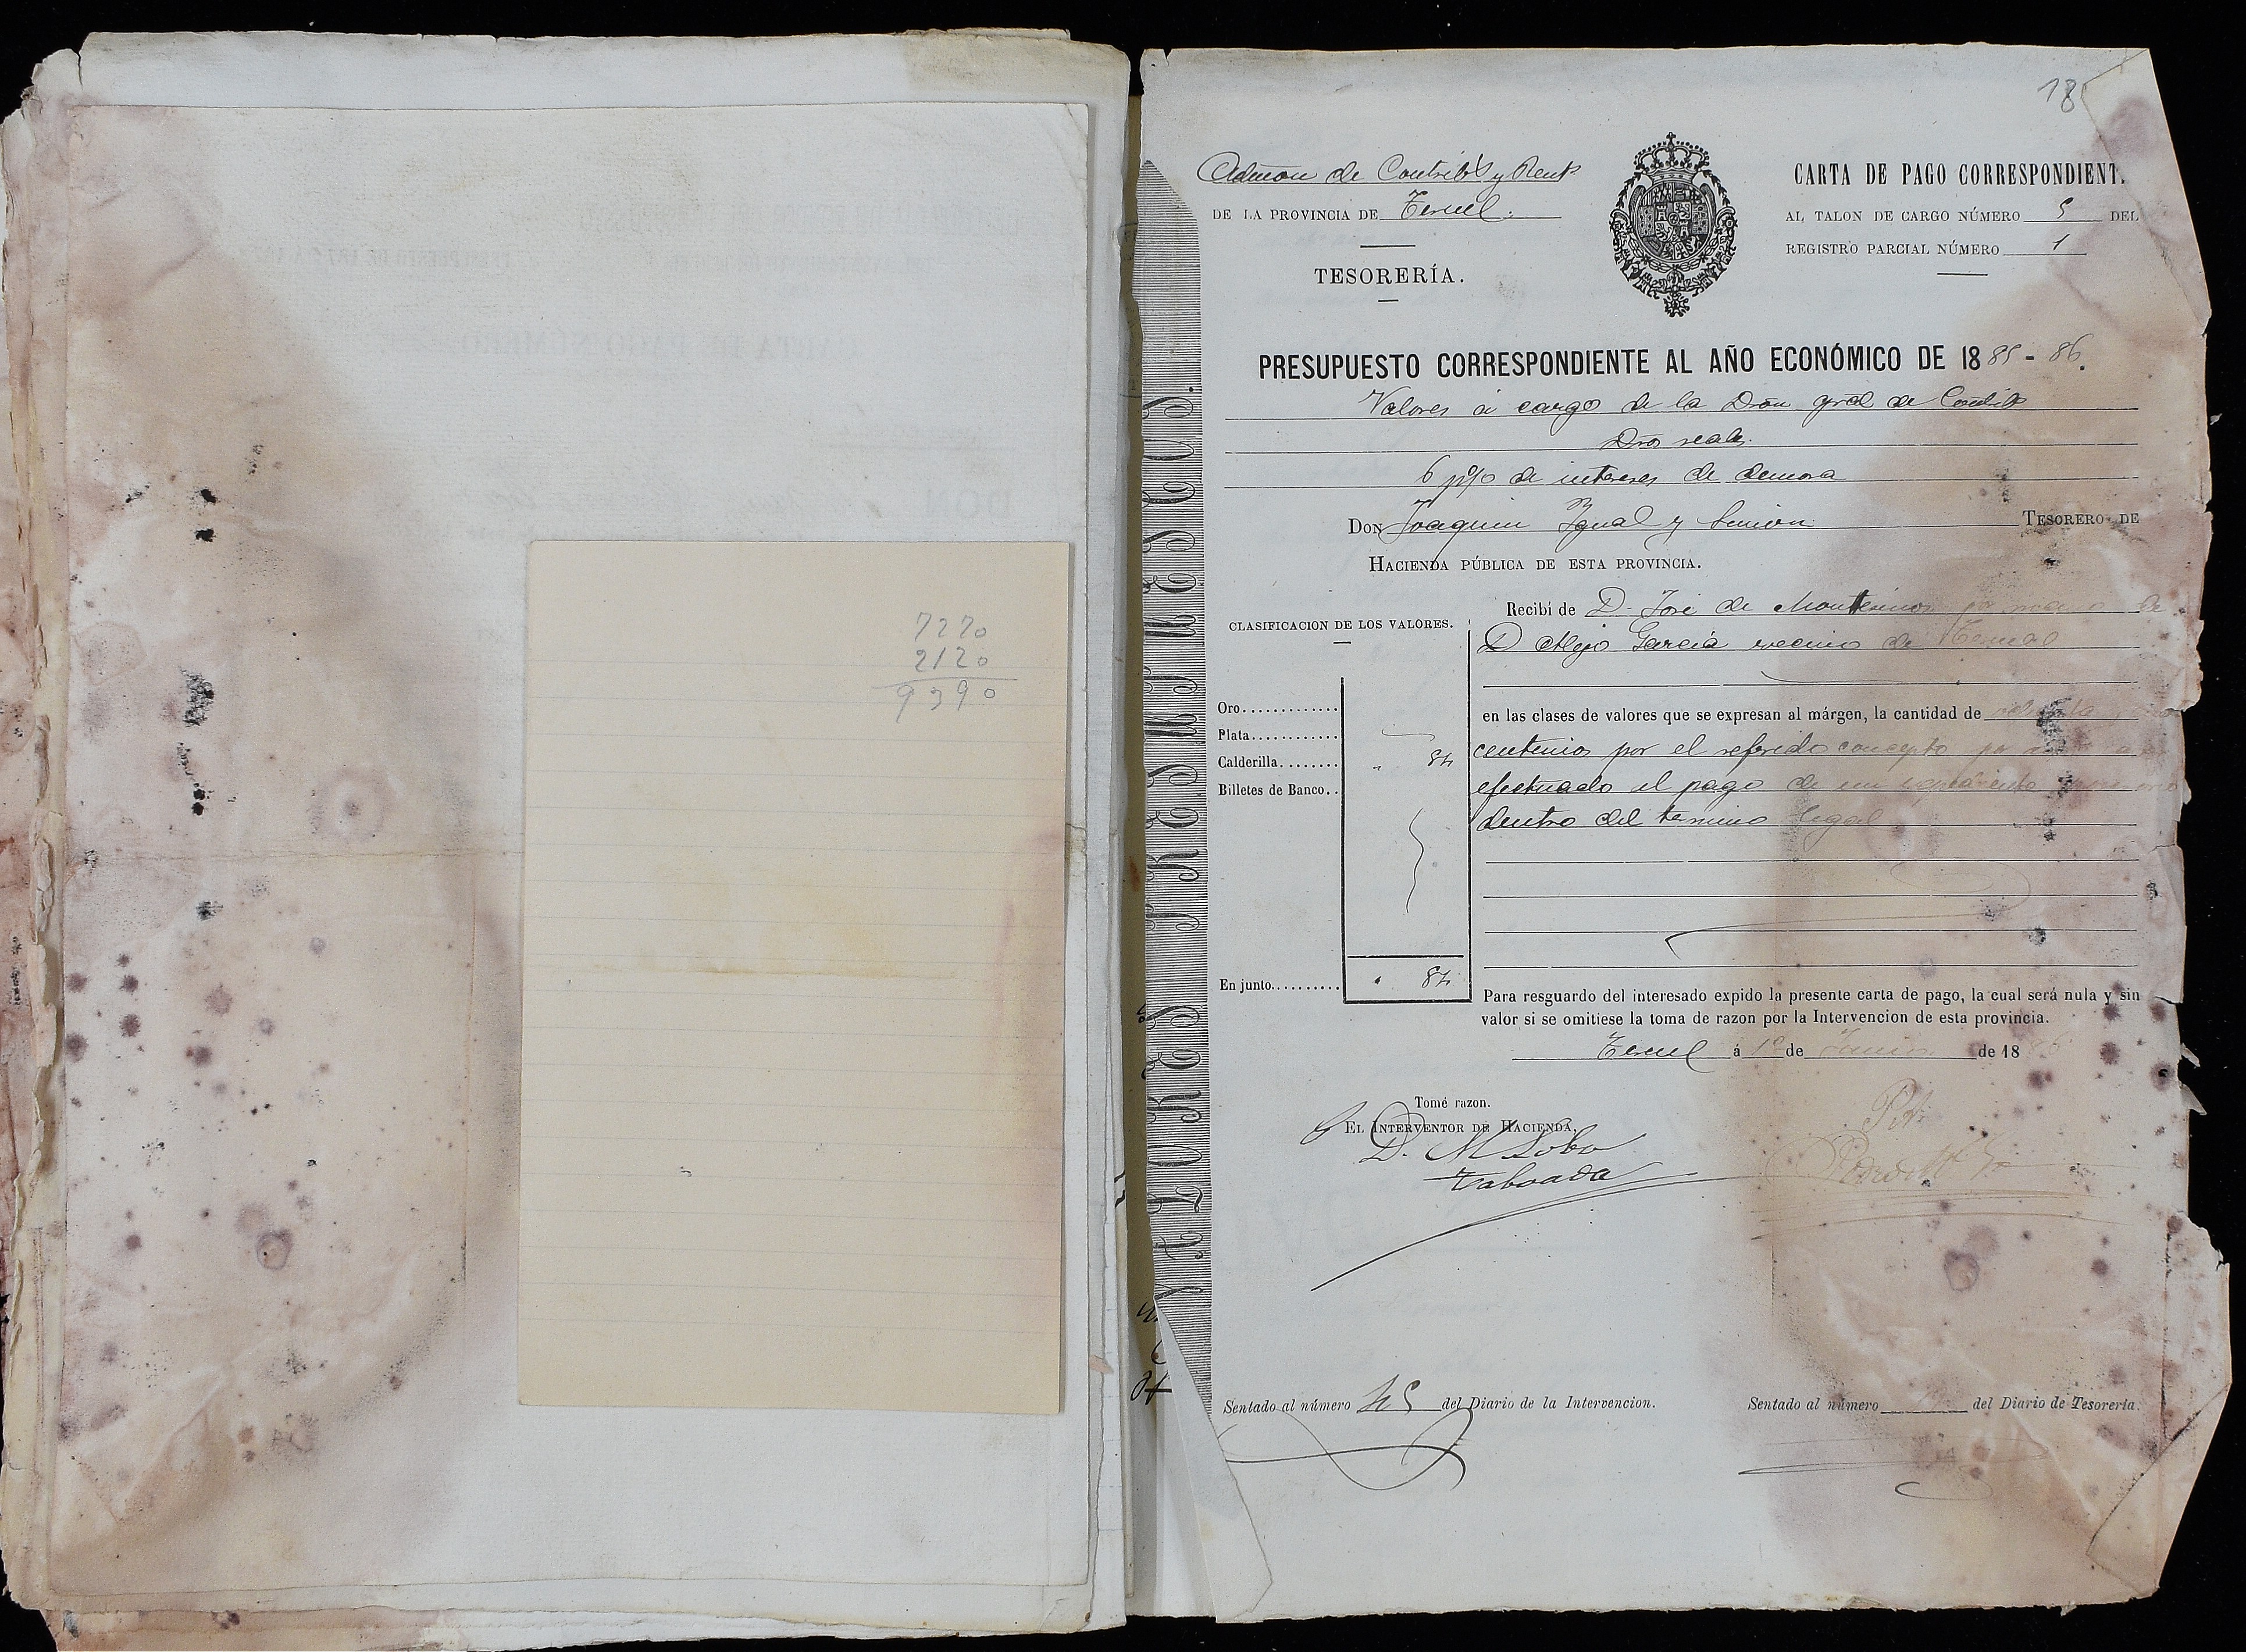 7270
2120
9390
18
Admon de Contrib.s y Rent.s
DE LA PROVINCIA DE Teruel.
TESORERÍA.
CARTA DE PAGO CORRESPONDIENT
AL TALON DE CARGO NÚMERO 5 DEL
REGISTRO PARCIAL NÚMERO 1
PRESUPUESTO CORRESPONDIENTE AL AÑO ECONÓMICO DE 1885 - 86.
Valores á cargo de la Dron gral de Contribs
Dros reales.
6 p% de intereses de demora
DON Joaquin Igual y TESORERO DE
HACIENDA PÚBLICA DE ESTA PROVINCIA.
CLASIFICACION DE LOS VALORES.
Oro
Plata
Calderilla 84
Billetes de Banco
En junto 84
Recibí de D. José de por mano de
D Alejo García vecino de Teruel
en las clases de valores que se expresan al márgen, la cantidad de
centimos por el referido concepto por
efectuado el pago de un expediente
dentro del termino legal
Para resguardo del interesado expido la presente carta de pago, la cual será nula y sin
valor si se omitiese la toma de razon por la Intervencion de esta provincia.
Teruel á 1º de de 1886
Tomé razon.
EL INTERVENTOR DE HACIENDA,
D. M Lobo
Taboada
Sentado al número 45 del Diario de la Intervencion.
Sentado al número del Diario de Tesorería.